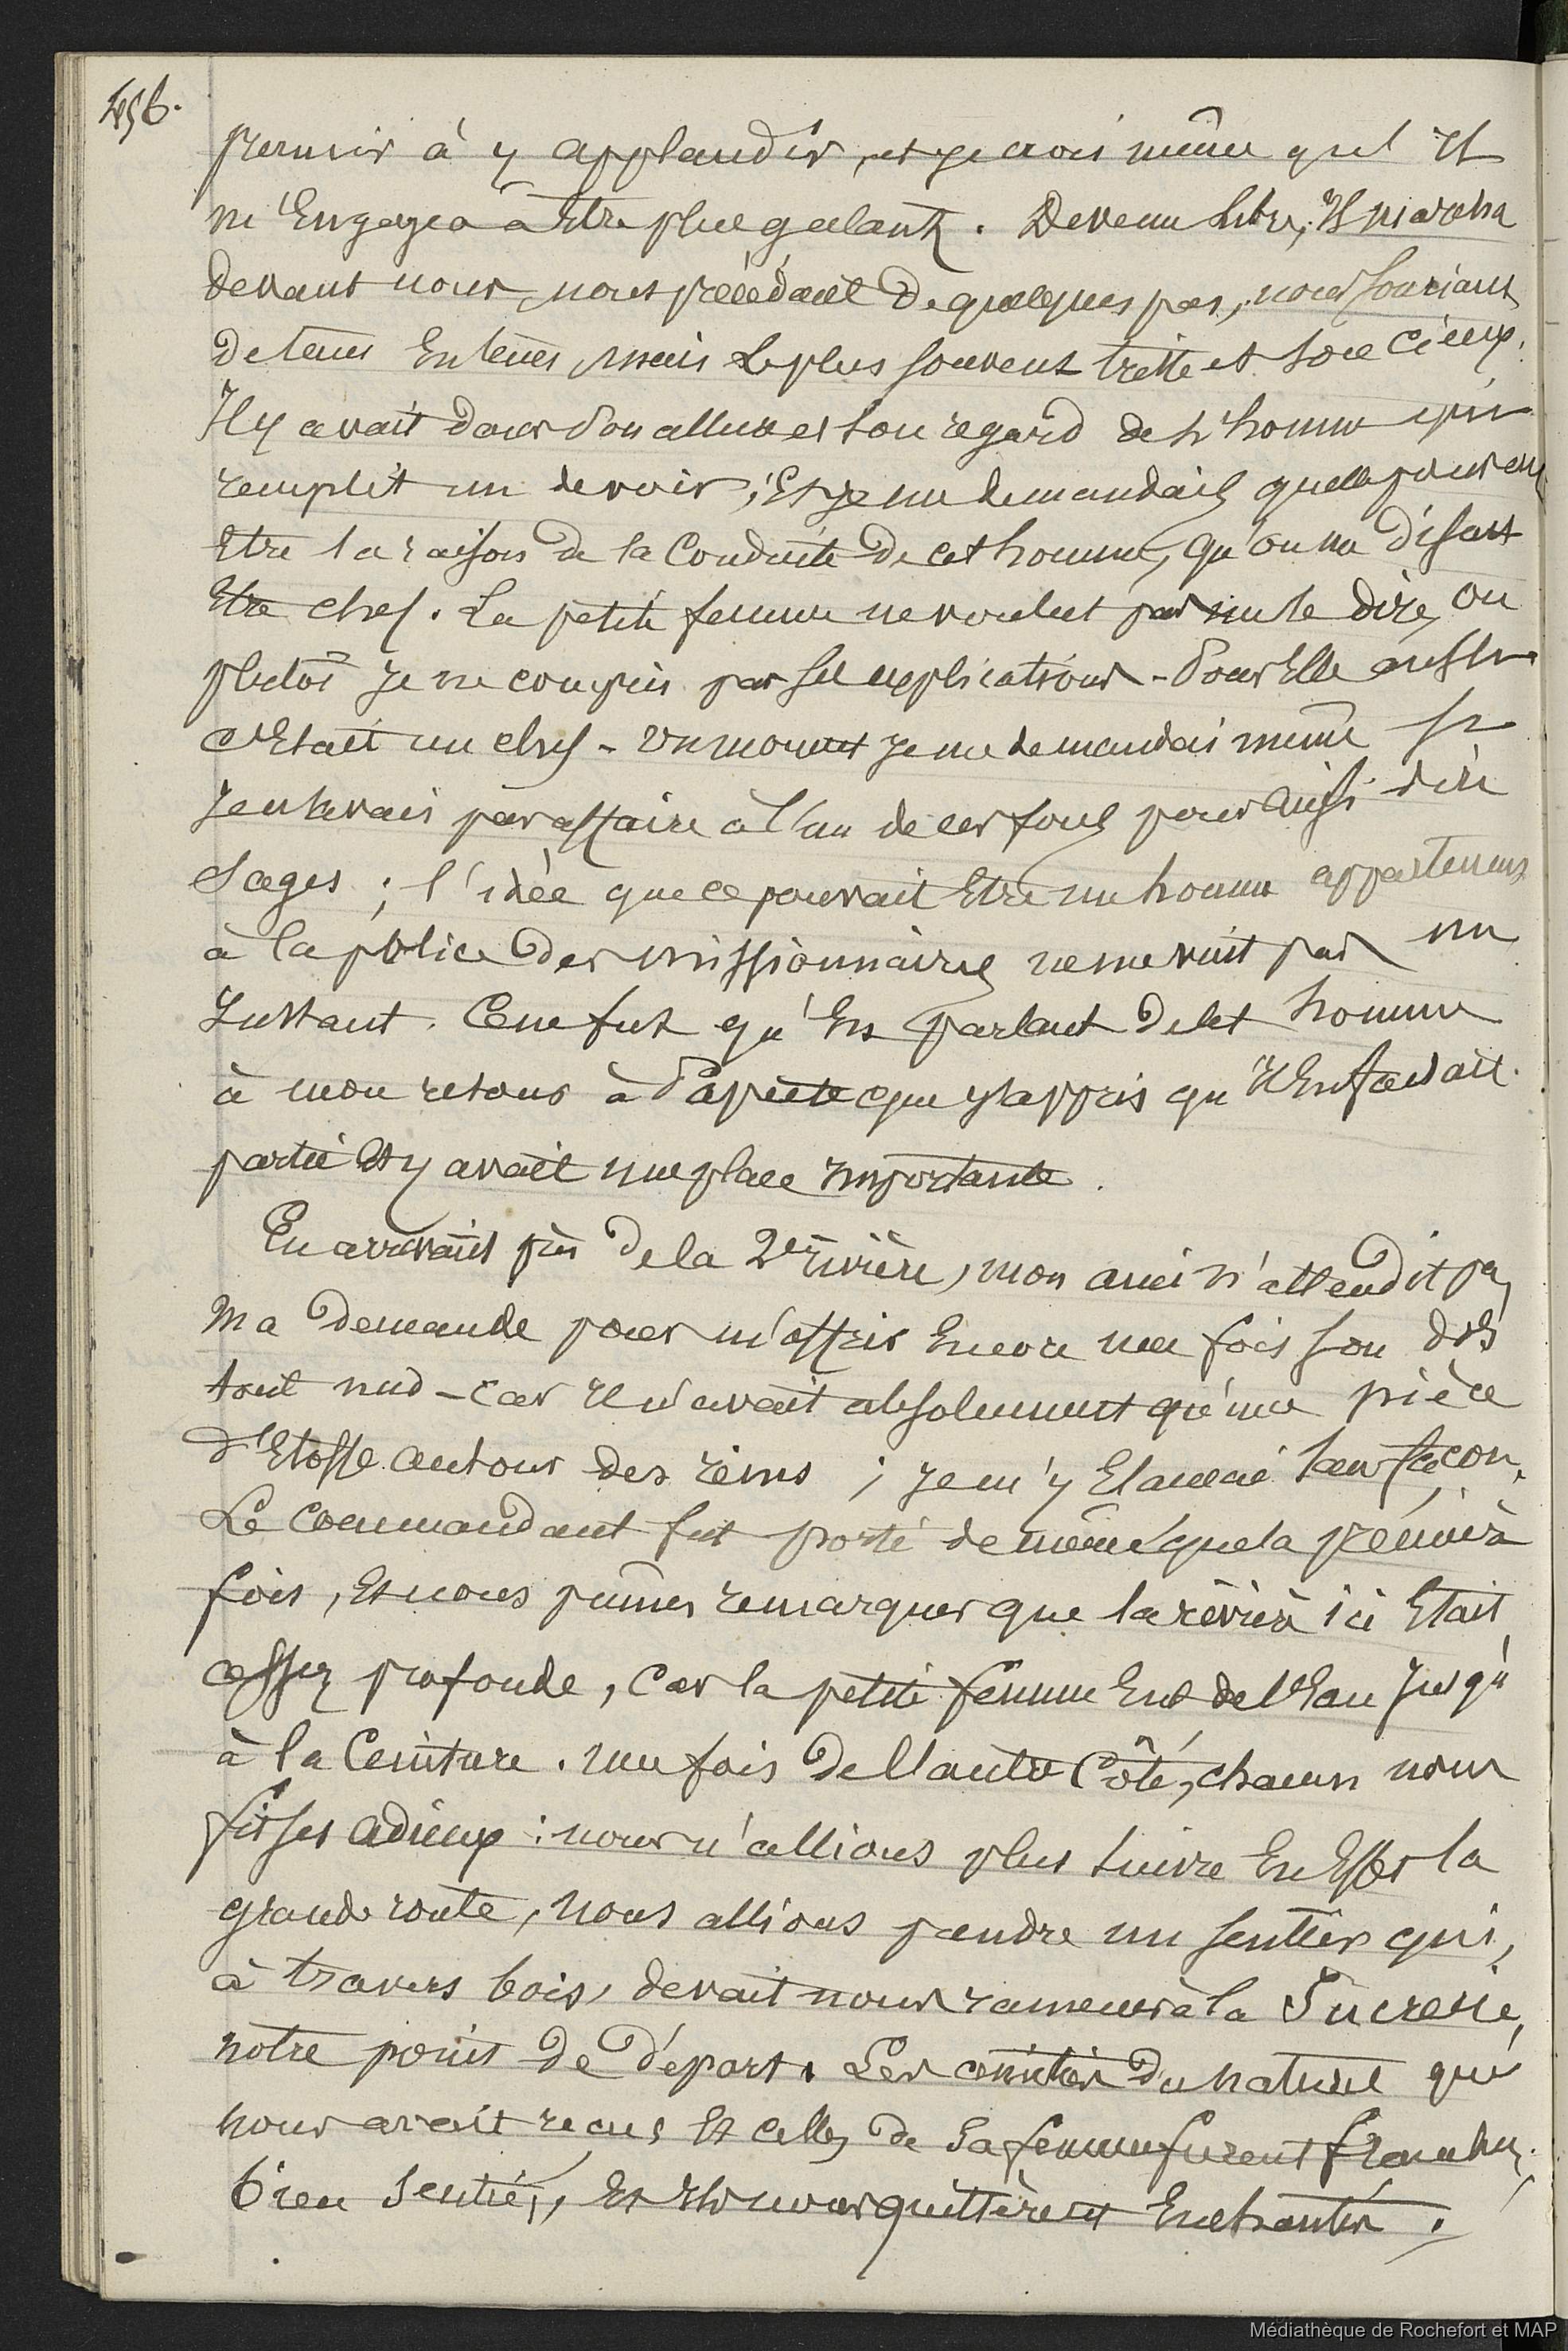 456.
premier à y applaudir, et je crois même qu'il
m'engagea à être plus galant. Devenu libre, il marcha
devant nous, nous précédant de quelques pas, nous souriant
de temps en temps, mais le plus souvent triste et soucieux.
Il y avait dans son allure et son regard de l'homme qui
remplit un devoir, et je me demandais quelle pouvait
être la raison de la conduite de cet homme, qu'on me disait
être chef. La petite femme ne voulut pas me le dire, ou
plutôt je ne compris pas ses explications - Pour elle aussi
c'était un chef - Un moment je me demandai même si
je n'avais pas affaire à l'un de ces fous pour ainsi dire
sages ; l'idée que ce pouvait être un homme appartenant
à la police des missionnaires ne me vint pas un
instant. Ce ne fut qu'en parlant de cet homme
à mon retour à Papeete que j'appris qu'il en faisait
partie et y avait une place importante.
En arrivant près de la 2e rivière, mon ami n'attendit pas
ma demande pour m'offrir encore une fois son dos
tout nud - car il n'avait absolument qu'une pièce
d'étoffe autour des reins ; je m'y élançai sans façon.
Le commandant fut porté de même que la première
fois, et nous pûmes remarquer que la rivière ici était
assez profonde, car la petite femme eut de l'eau jusqu'
à la ceinture. Une fois de l'autre côté, chacun nous
fit ses adieux : nous n'allions plus suivre en effet la
grande route, nous allions prendre un sentier qui,
à travers bois, devait nous ramener à la Sucrerie,
notre point de départ. Les du naturel qui
nous avait reçus et celles de sa femme furent franches,
bien senties, et ils nous quittèrent enchantés.
Médiathèque de Rochefort et MAP